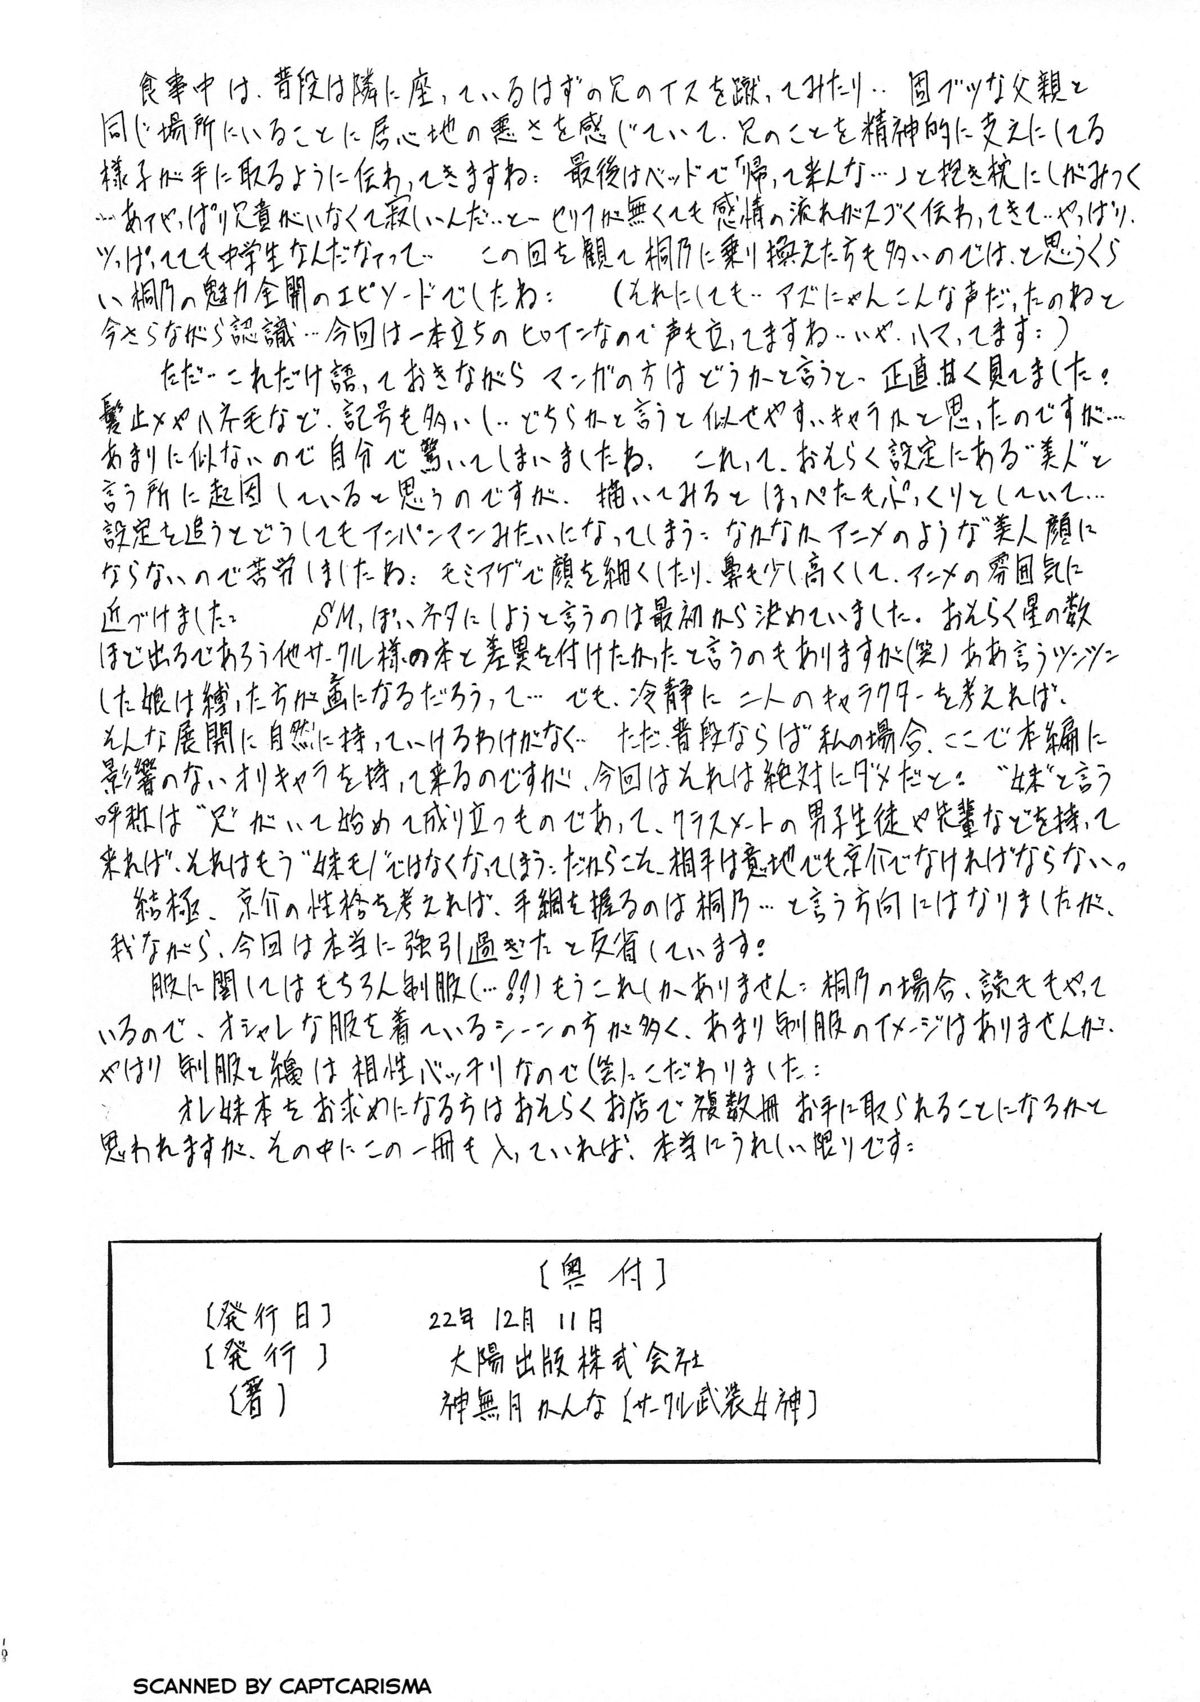 食事中は、普段は隣に座っているはずの兄のイスを蹴ってみたり‥ 固ブツな父親と
同じ場所にいることに居心地の悪さを感じていて、兄のことを精神的に支えにしてる
様子が手に取るように伝わってきますね: 最後はベッドで「帰って来んな…」と抱き枕にしがみつく
…あァやっぱり兄貴がいなくて寂しいんだ‥と― セリフが無くても感情の流れがスゴく伝わってきて‥やっぱり、
ツッぱってても中学生なんだなァって‥ この回を観て桐乃に乗り換えた方も多いのでは、と思うくら
い桐乃の魅力全開のエピソードでしたね: (それにしても‥アズにゃんこんな声だったのねと
今さらながら認識…今回は一本立ちのヒロインなので声も立ってますね…いや、ハマってます:)
ただ‥これだけ語っておきながら マンガの方はどうかと言うと、正直、甘く見てました。
髪止メやハネ毛など、記号も多いし‥どちらかと言うと似せやすいキャラかと思ったのですが…
あまりに似ないので自分で驚いてしまいましたね、 これって、おそらく設定にある"美人"と
言う所に起因していると思うのですが、描いてみるとほっぺたもぷっくりとしていて…
設定を追うとどうしてもアンパンマンみたいになってしまう: なかなかアニメのような"美人顔に
ならないので苦労しましたね: モミアゲで顔を細くしたり、鼻も少し高くして、アニメの雰囲気に
近づけました: SMっぽいネタにしようと言うのは最初から決めていました。おそらく星の数
ほど出るであろう他サークル様の本と差異を付けたかったと言うのもありますが(笑) ああ言うツンツン
した娘は縛った方が画になるだろうって… でも、冷静に二人のキャラクターを考えれば、
そんな展開に自然に持っていけるわけがなく‥ ただ、普段ならば私の場合、ここで本編に
影響のないオリキャラを持って来るのですが、今回はそれは絶対にダメだと: "妹"と言う
呼称は"兄"がいて始めて成り立つものであって、クラスメートの男子生徒や先輩などを持って
来れば、それはもう"妹モノ"ではなくなってしまう: だからこそ、相手は意地でも京介でなければならない。
結極、京介の性格を考えれば、手綱を握るのは桐乃…と言う方向にはなりましたが、
我ながら、今回は本当に強引過ぎたと反省しています:
服に関してはもちろん制服(…!?)もうこれしかありません: 桐乃の場合、読モもやって
いるので、オシャレな服を着ているシーンの方が多く、あまり制服のイメージはありませんが、
やはり 制服と縄は相性バッチリなので(笑)こだわりました:
オレ妹本をお求めになる方はおそらくお店で複数冊お手に取られることになるかと
思われますが、その中にこの一冊も入っていれば、本当にうれしい限りです:
[奥付]
[発行日] 22年12月11日
[発行] 大陽出版株式会社
[著] 神無月かんな[サークル武装女神]
SCANNED BY CAPTCARISMA